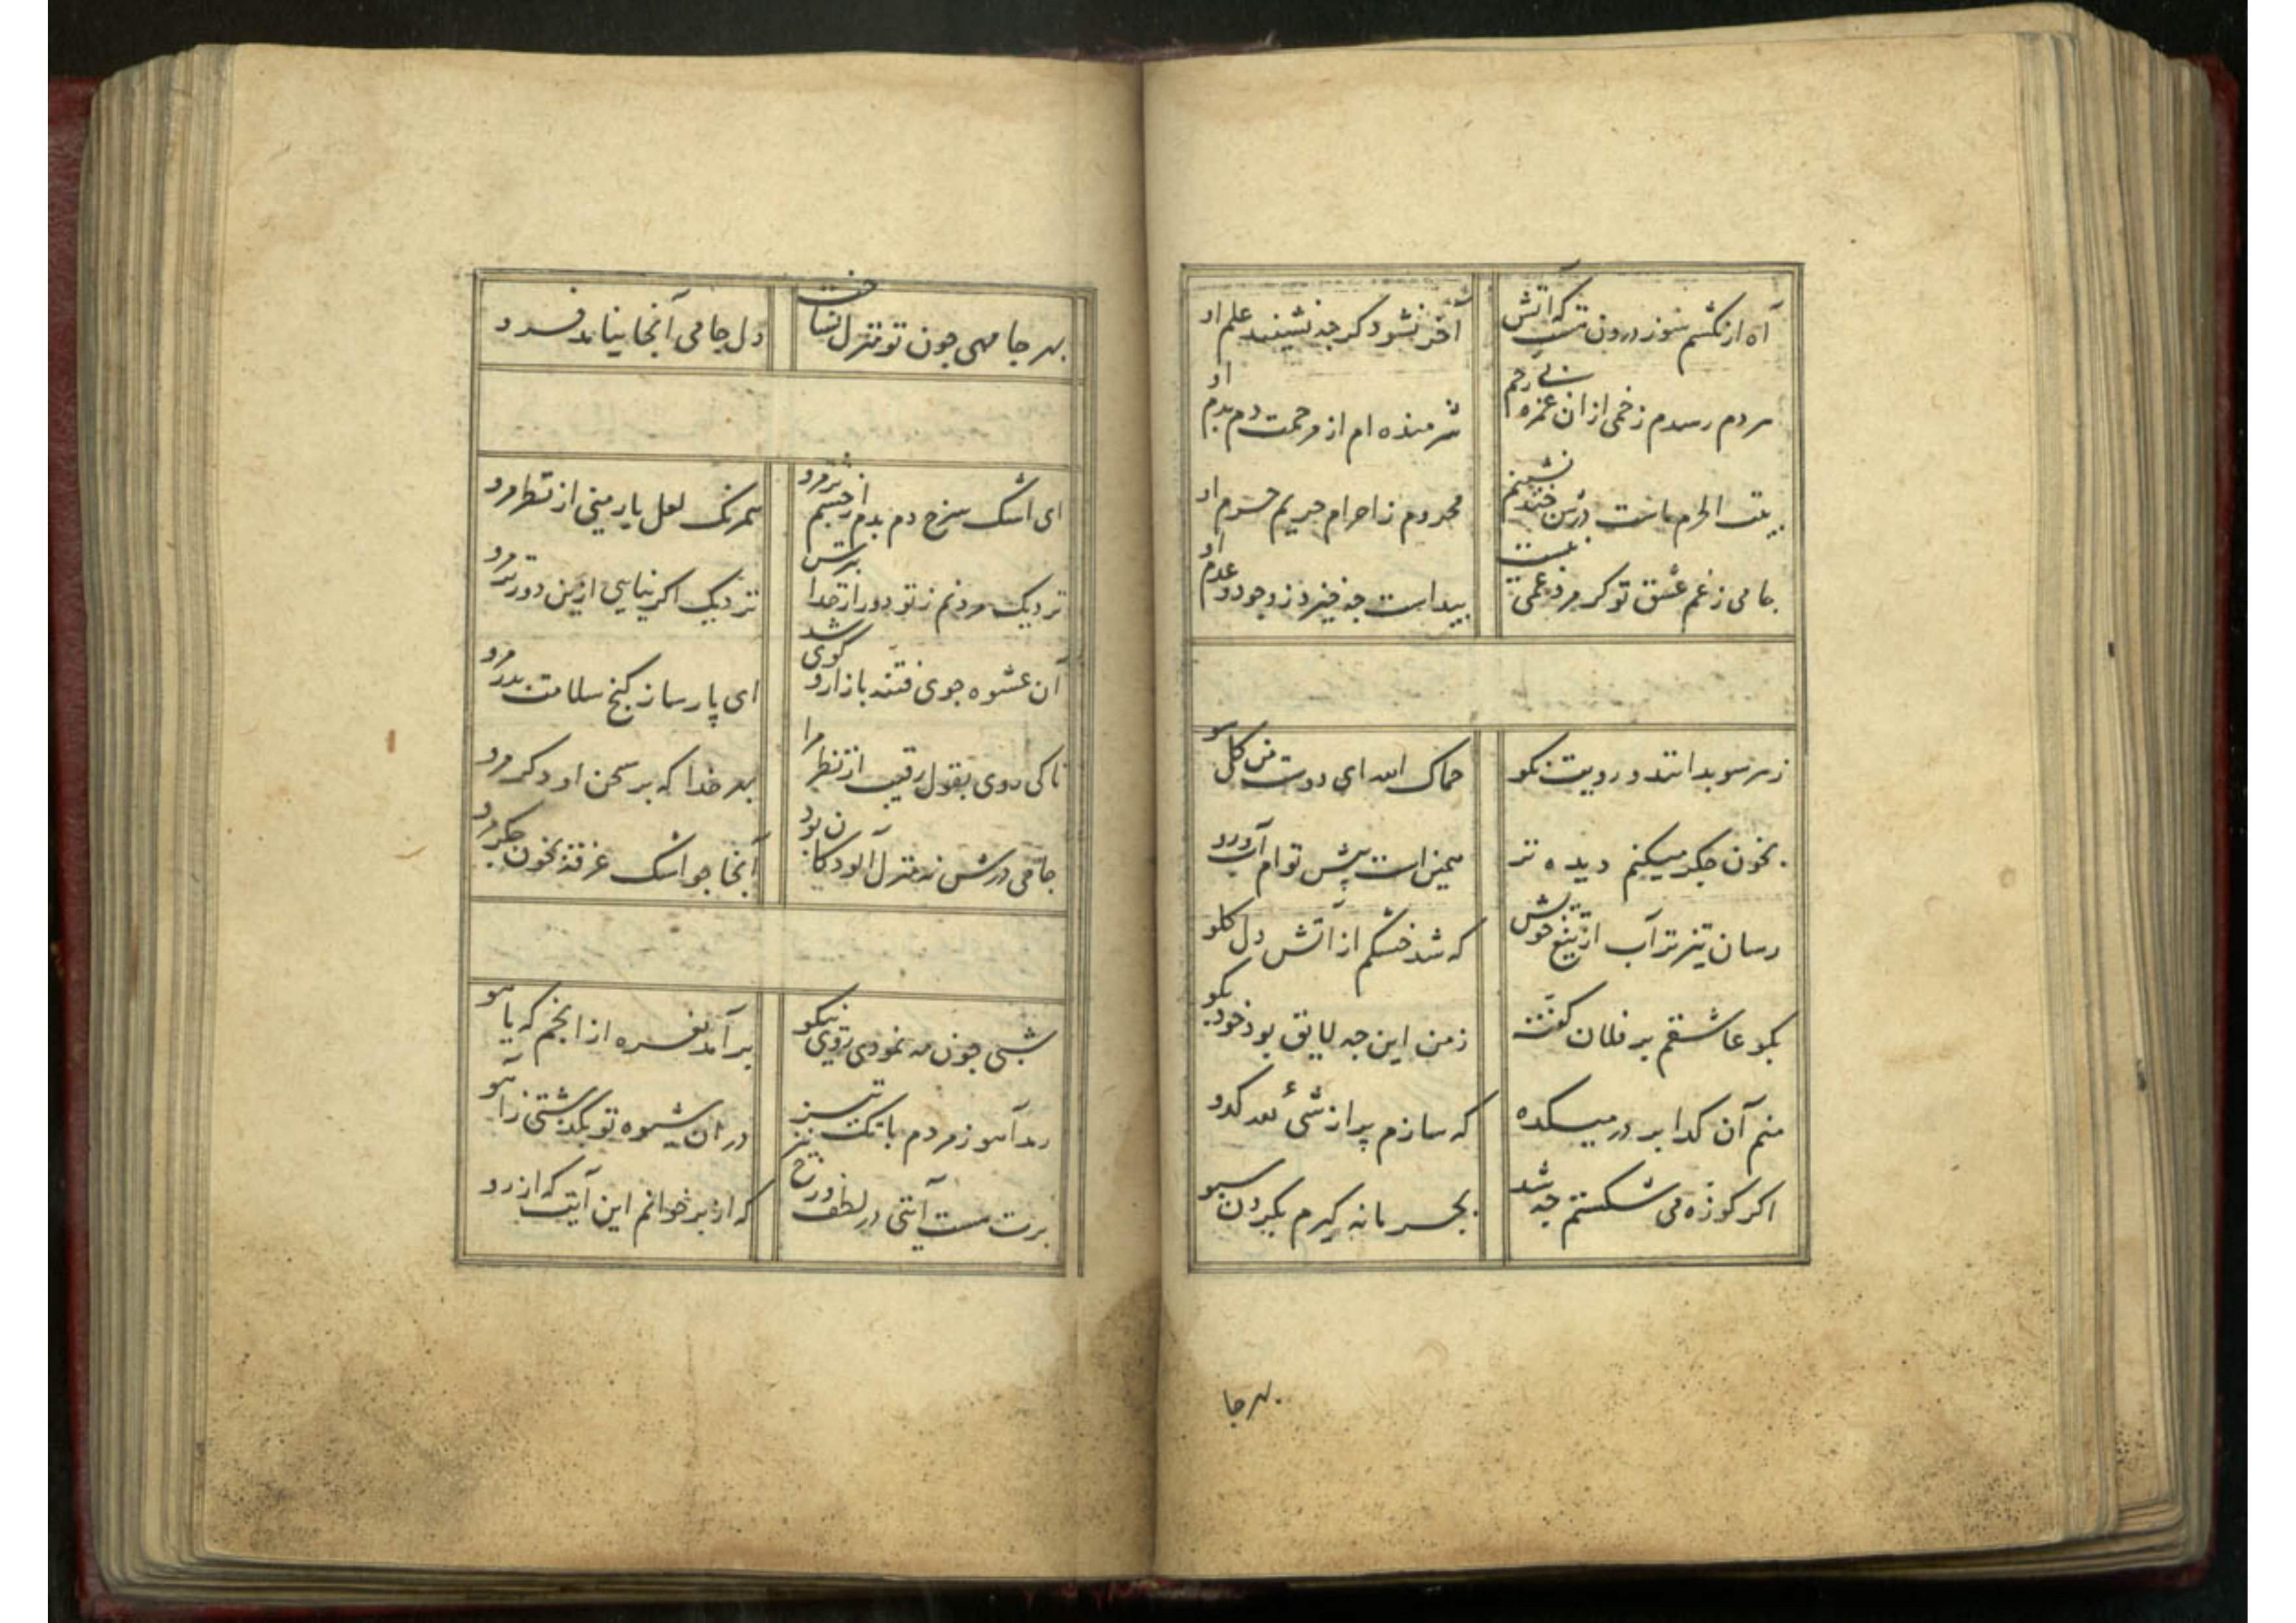 آه ار نکشم سوز درون نیست که آتش آخر نشود کر چه نشینند علم او
هر دم رسدم زخمی از ان غمزه بی رحم شرمنده ام از مرحمت دم بدم او
بیت الحرم ماست درش چند نشینم محروم ز احرام حریم حرم او
جامی ز غم عشق تو کر مرد غمی نیست پیداست چه خیزد ز وجود و عدم او
ز هر سو بدانند و رویت نکو حماک الله ای دوست من کل سو
بخون جکر میکنم دیده تر همین است پیش توام آب رو
رسان تیزتر آب از تیغ خویش که شد خشکم از آتش دل کلو
بکو عاشقم بر فلان کفته ز من این چه لایق بود خود بکو
منم آن کدا بر در میکده که سازم پر از شیء لله کدو
اکر کوزه می شکستم چه شد بجرمانه کیرم بکردن سبو
بهر جا
بهر جا مهی چون تو منزل نساخت دل جامی آنجا نیاید فرود
ای اشک سرخ دم بدم از چشم تر مرو همرنک لعل یار منی از نظر مرو
نزدیک مردنم ز تو دور از خدا بترس نزدیک اکر نیایی ازین دورتر مرو
آن عشوه جوی فتنه بازار و کوی شد ای پارسا ز کنج سلامت بدر مرو
تا کی روی بقول رقیب از نظر مرا بهر خدا که بر سخن او دکر مرو
جامی درش نه منزل آلودکان بود آنجا چو اشک غرقه بخون جکر مرو
شبی چون مه نمودی روی نیکو برآمد نعره از انجم که یا هو
رمد آهو ز مردم با تک تیز در ان شیوه تو بکذشتی ز آهو
برت هست آیتی در لطف و رخ نیز که از بر خوانم این آیت که از رو